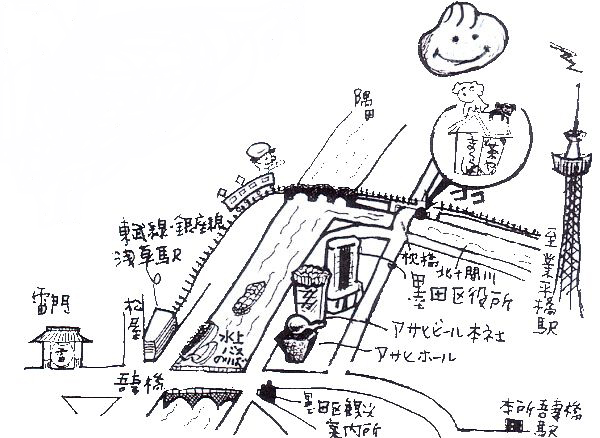 隅田
東武線・銀座線
浅草駅
雷門
雷
松屋
吾妻橋
水上
バス
のりば
ココ
枕橋
北十間川
墨田区役所
アサヒビール本社
アサヒホール
墨田区観光
案内所
至業平橋駅
本所吾妻橋
駅